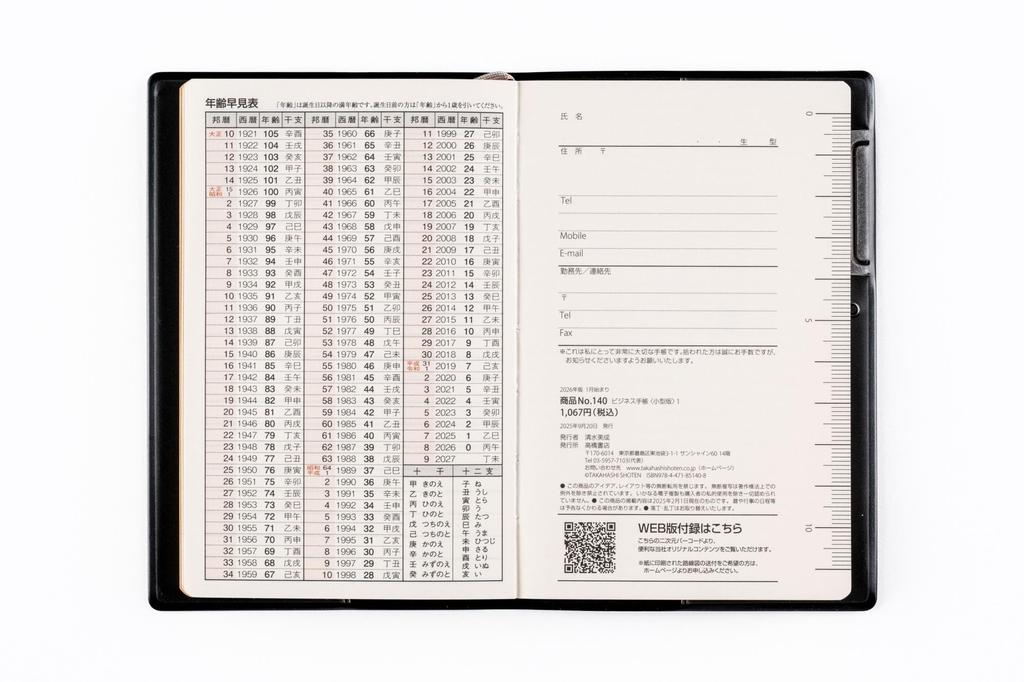 年齢早見表 「年齢」は誕生日以降の満年齢です。誕生日前の方は「年齢」から1歳を引いてください。
邦暦 西暦 年齢 干支
大正 10 1921 105 辛酉
11 1922 104 壬戌
12 1923 103 癸亥
13 1924 102 甲子
14 1925 101 乙丑
大正 15 昭和 1 1926 100 丙寅
2 1927 99 丁卯
3 1928 98 戊辰
4 1929 97 己巳
5 1930 96 庚午
6 1931 95 辛未
7 1932 94 壬申
8 1933 93 癸酉
9 1934 92 甲戌
10 1935 91 乙亥
11 1936 90 丙子
12 1937 89 丁丑
13 1938 88 戊寅
14 1939 87 己卯
15 1940 86 庚辰
16 1941 85 辛巳
17 1942 84 壬午
18 1943 83 癸未
19 1944 82 甲申
20 1945 81 乙酉
21 1946 80 丙戌
22 1947 79 丁亥
23 1948 78 戊子
24 1949 77 己丑
25 1950 76 庚寅
26 1951 75 辛卯
27 1952 74 壬辰
28 1953 73 癸巳
29 1954 72 甲午
30 1955 71 乙未
31 1956 70 丙申
32 1957 69 丁酉
33 1958 68 戊戌
34 1959 67 己亥
邦暦 西暦 年齢 干支
35 1960 66 庚子
36 1961 65 辛丑
37 1962 64 壬寅
38 1963 63 癸卯
39 1964 62 甲辰
40 1965 61 乙巳
41 1966 60 丙午
42 1967 59 丁未
43 1968 58 戊申
44 1969 57 己酉
45 1970 56 庚戌
46 1971 55 辛亥
47 1972 54 壬子
48 1973 53 癸丑
49 1974 52 甲寅
50 1975 51 乙卯
51 1976 50 丙辰
52 1977 49 丁巳
53 1978 48 戊午
54 1979 47 己未
55 1980 46 庚申
56 1981 45 辛酉
57 1982 44 壬戌
58 1983 43 癸亥
59 1984 42 甲子
60 1985 41 乙丑
61 1986 40 丙寅
62 1987 39 丁卯
63 1988 38 戊辰
昭和 64 平成 1 1989 37 己巳
2 1990 36 庚午
3 1991 35 辛未
4 1992 34 壬申
5 1993 33 癸酉
6 1994 32 甲戌
7 1995 31 乙亥
8 1996 30 丙子
9 1997 29 丁丑
10 1998 28 戊寅
邦暦 西暦 年齢 干支
11 1999 27 己卯
12 2000 26 庚辰
13 2001 25 辛巳
14 2002 24 壬午
15 2003 23 癸未
16 2004 22 甲申
17 2005 21 乙酉
18 2006 20 丙戌
19 2007 19 丁亥
20 2008 18 戊子
21 2009 17 己丑
22 2010 16 庚寅
23 2011 15 辛卯
24 2012 14 壬辰
25 2013 13 癸巳
26 2014 12 甲午
27 2015 11 乙未
28 2016 10 丙申
29 2017 9 丁酉
30 2018 8 戊戌
平成 31 令和 1 2019 7 己亥
2 2020 6 庚子
3 2021 5 辛丑
4 2022 4 壬寅
5 2023 3 癸卯
6 2024 2 甲辰
7 2025 1 乙巳
8 2026 0 丙午
9 2027 丁未
十干
甲 きのえ
乙 きのと
丙 ひのえ
丁 ひのと
戊 つちのえ
己 つちのと
庚 かのえ
辛 かのと
壬 みずのえ
癸 みずのと
十二支
子 ね
丑 うし
寅 とら
卯 う
辰 たつ
巳 み
午 うま
未 ひつじ
申 さる
酉 とり
戌 いぬ
亥 い
氏名
・ ・ 生 型
住所 〒
Tel
Mobile
E-mail
勤務先／連絡先
〒
Tel
Fax
※これは私にとって非常に大切な手帳です。拾われた方は誠にお手数ですが、
お知らせくださいますようお願いいたします。
2026年版 1月始まり
商品No.140 ビジネス手帳〈小型版〉1
1,067円(税込)
2025年9月20日 発行
発行者 清水美成
発行所 高橋書店
〒170-6014 東京都豊島区東池袋3-1-1 サンシャイン60 14階
Tel 03-5957-7103(代表)
お問い合わせ先 www.takahashishoten.co.jp（ホームページ）
©TAKAHASHI SHOTEN ISBN978-4-471-85140-8
● この商品のアイデア、レイアウト等の無断転用を禁じます。 無断複写は著作権法上での
例外を除き禁止されています。 いかなる電子複製も購入者の私的使用を除き一切認められ
ていません。 ● この商品の掲載内容は2025年2月1日現在のものです。 暦や行事の日程等
は予告なくかわる場合があります。 ● 落丁・乱丁はお取り替えいたします。
WEB版付録はこちら
こちらの二次元バーコードより、
便利な当社オリジナルコンテンツをご覧いただけます。
※紙に印刷された路線図の送付をご希望の方は、
ホームページよりお申し込みください。
0
5
10